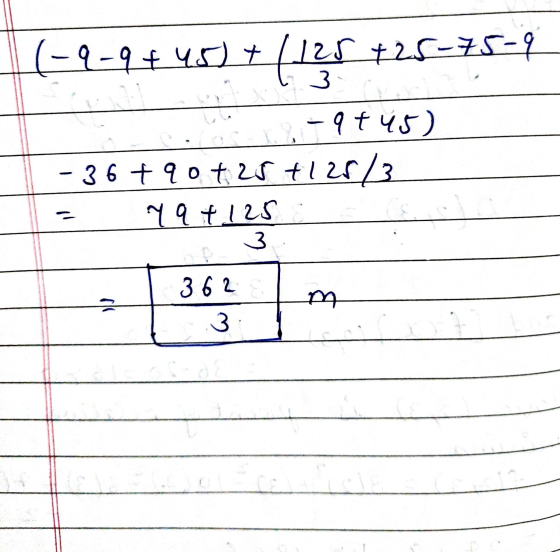 (-9-9+45) + (125/3 +25-75-9
-9+45)
-36+90+25+125/3
= 79+125/3
= 362/3 m